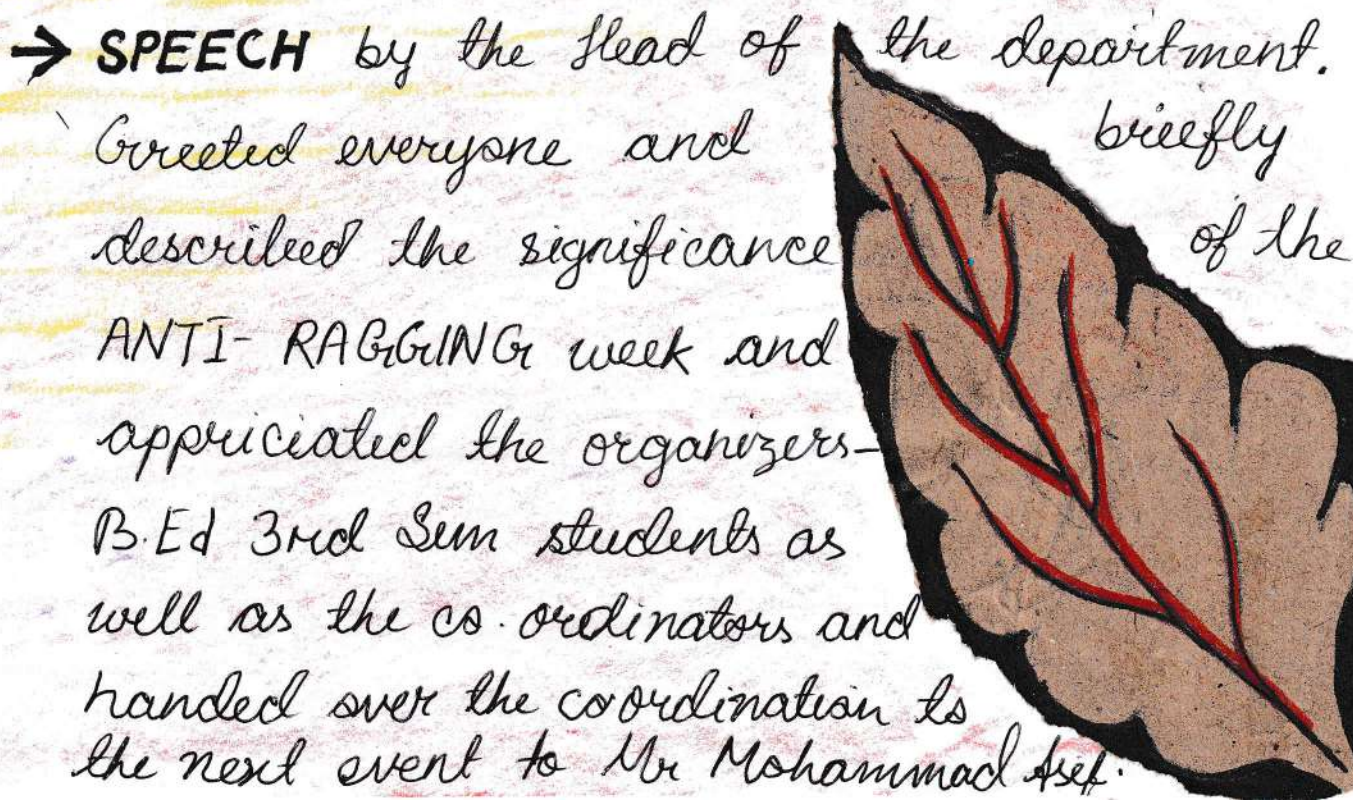 → SPEECH by the Head of the department.
Greeted everyone and briefly
described the significance of the
ANTI- RAGGING week and
appriciated the organizers-
B.Ed 3rd Sem students as
well as the co-ordinators and
handed over the coordination to
the next event to Mr Mohammad Asef.